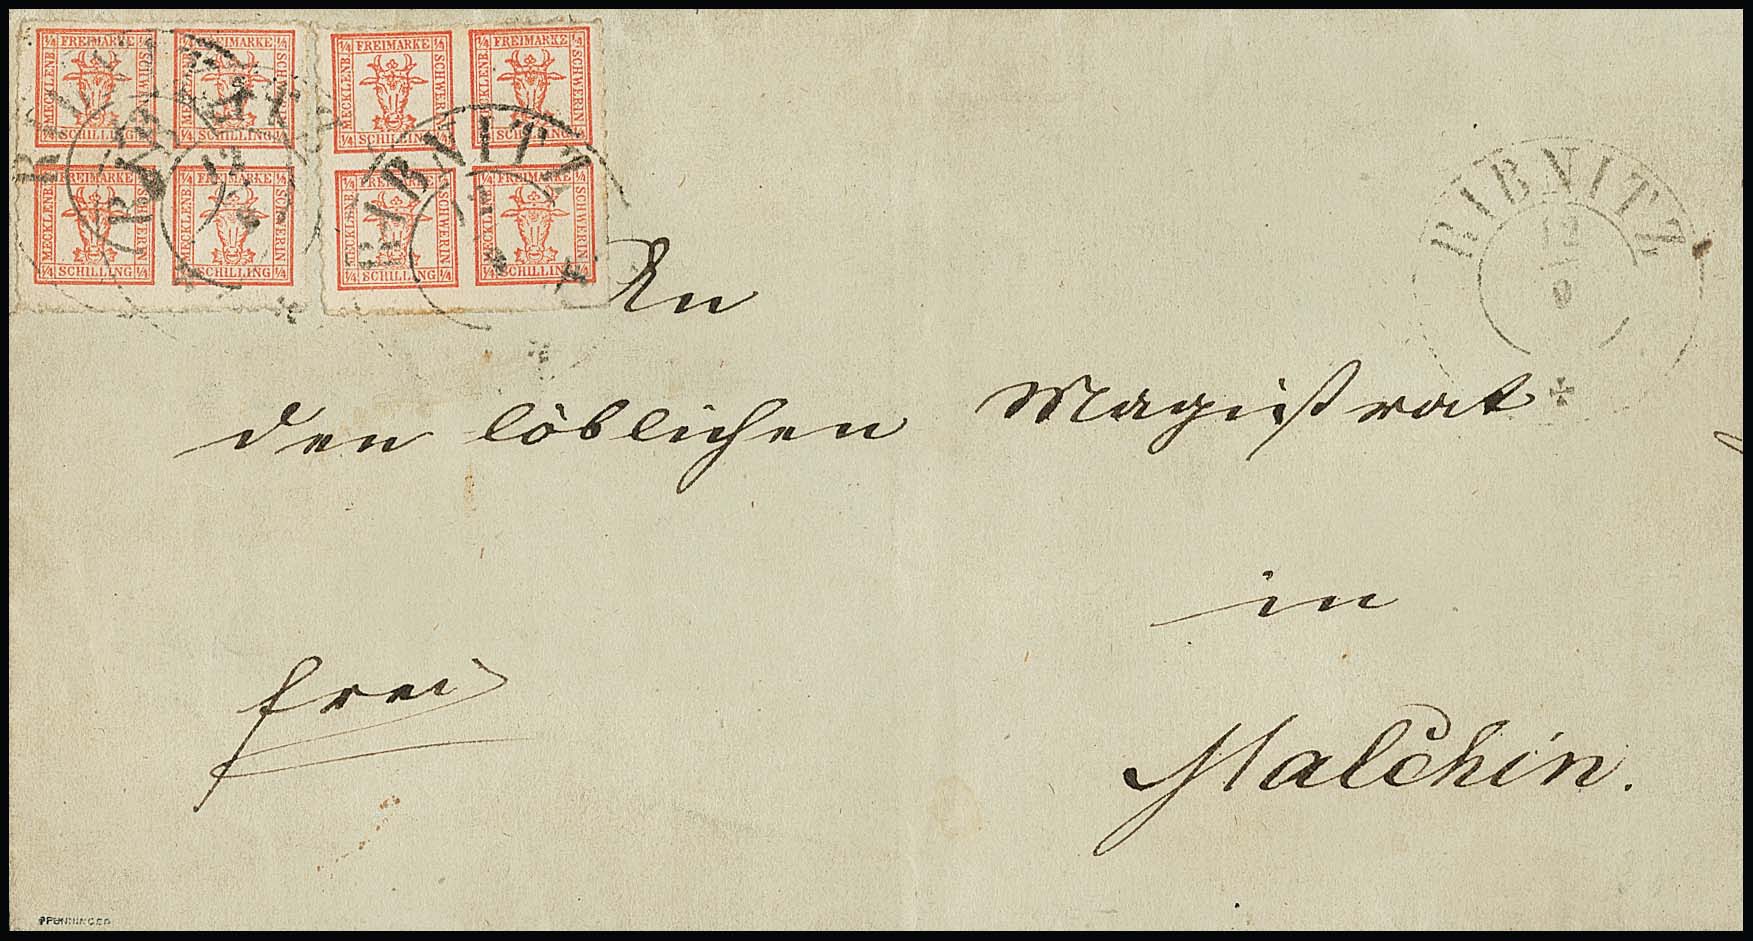 ¼ FREIMARKE ¼ ¼ FREIMARKE ¼ ¼ FREIMARKE ¼ ¼ FREIMARKE ¼
MECKLENB. SCHWERIN MECKLENB. SCHWERIN MECKLENB. SCHWERIN MECKLENB. SCHWERIN
¼ SCHILLING ¼ ¼ SCHILLING ¼ ¼ SCHILLING ¼ ¼ SCHILLING ¼
¼ FREIMARKE ¼ ¼ FREIMARKE ¼ ¼ FREIMARKE ¼ ¼ FREIMARKE ¼
MECKLENB. SCHWERIN MECKLENB. SCHWERIN MECKLENB. SCHWERIN MECKLENB. SCHWERIN
¼ SCHILLING ¼ ¼ SCHILLING ¼ ¼ SCHILLING ¼ ¼ SCHILLING ¼
RIBNITZ
12
RIBNITZ
RIBNITZ
12
An
den löblichen Magistrat
in
frei
Malchin.
PFENNINGER